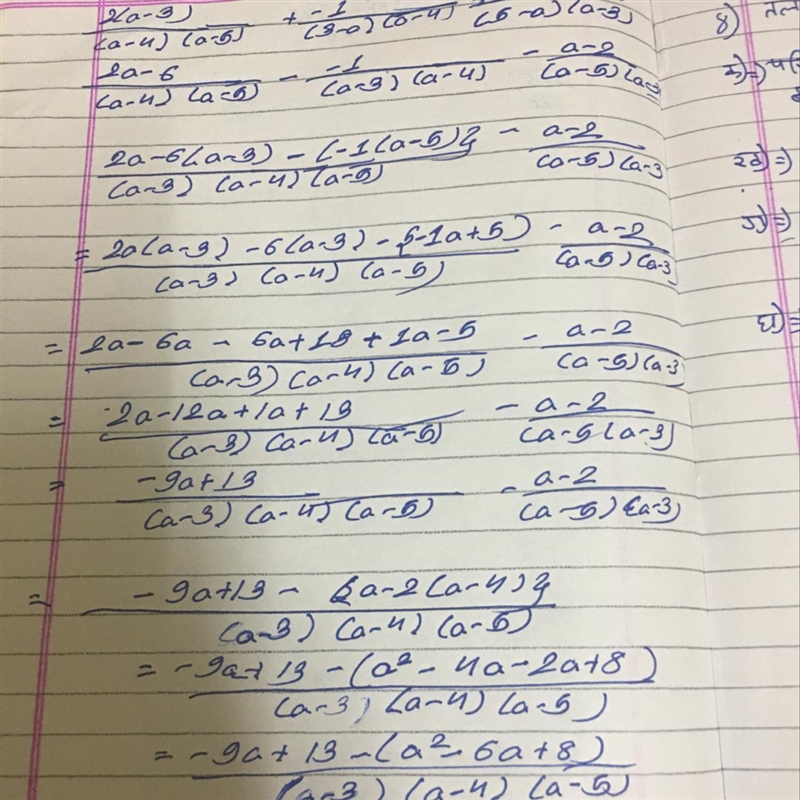 2(a-3) / (a-4) (a-5) + -1 / (3-a) (a-4) (5-a) (a-3)
2a-6 / (a-4) (a-5) - -1 / (a-3) (a-4) - a-2 / (a-5) (a-3
2a-6(a-3) - {-1(a-5)} / (a-3) (a-4) (a-5) - a-2 / (a-5) (a-3
= 2a(a-3) -6(a-3) - {-1a+5) / (a-3) (a-4) (a-5) - a-2 / (a-5) (a-3)
= 2a-6a - 6a+18+1a-5 / (a-3) (a-4) (a-5) - a-2 / (a-5) (a-3
= 2a-12a+1a+13 / (a-3) (a-4) (a-5) - a-2 / (a-5 (a-3)
= -9a+13 / (a-3) (a-4) (a-5) - a-2 / (a-5) (a-3)
= -9a+13 - {a-2(a-4)} / (a-3) (a-4) (a-5)
= -9a+13 -(a² - 4a-2a+8) / (a-3) (a-4) (a-5)
= -9a+13 -(a² - 6a+8) / (a-3) (a-4) (a-5)
४)
घ) =